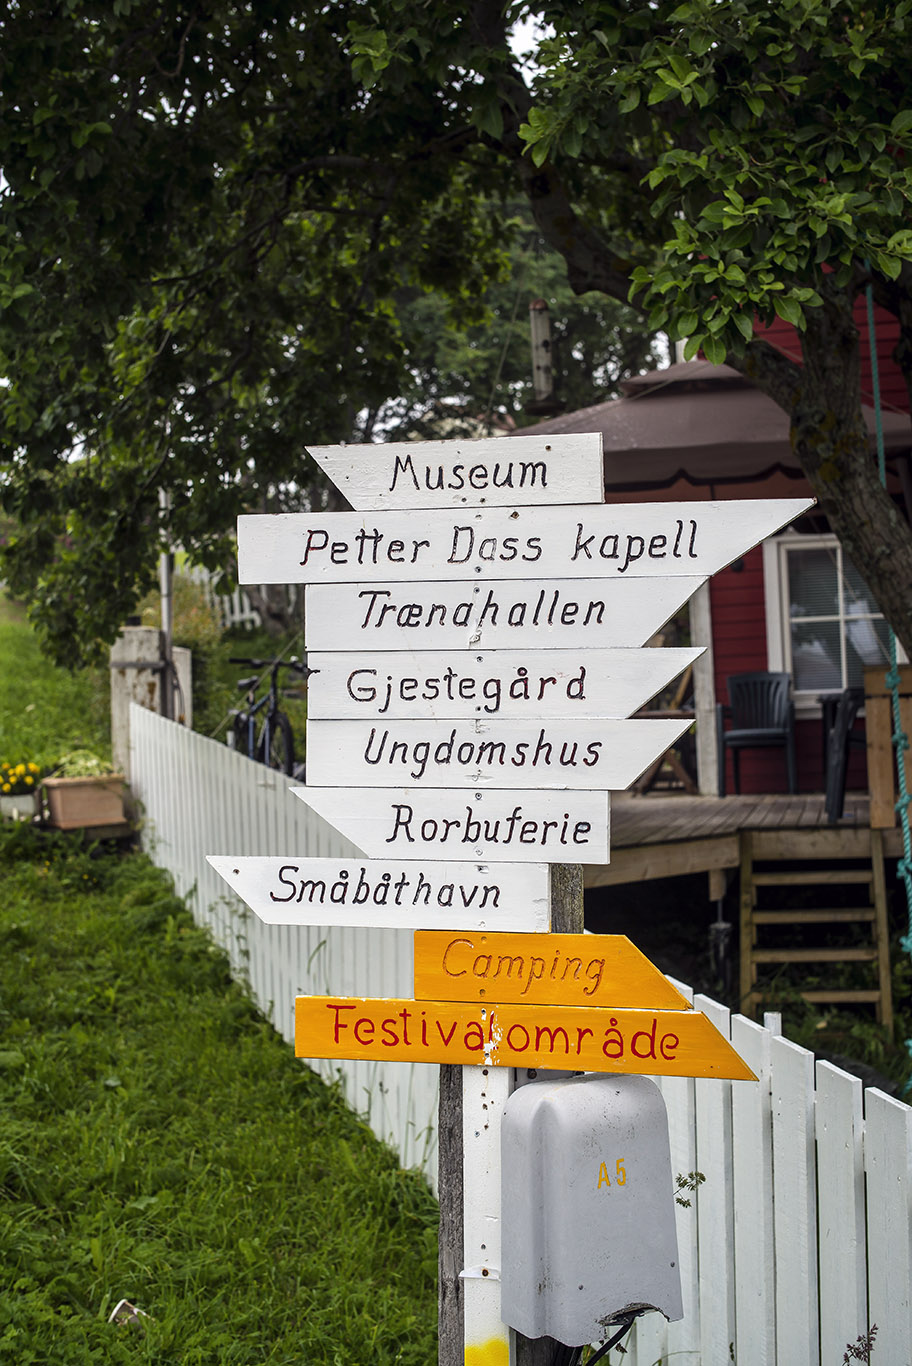 Museum
Petter Dass kapell
Trænahallen
Gjestegård
Ungdomshus
Rorbuferie
Småbåthavn
Camping
Festivalområde
A5